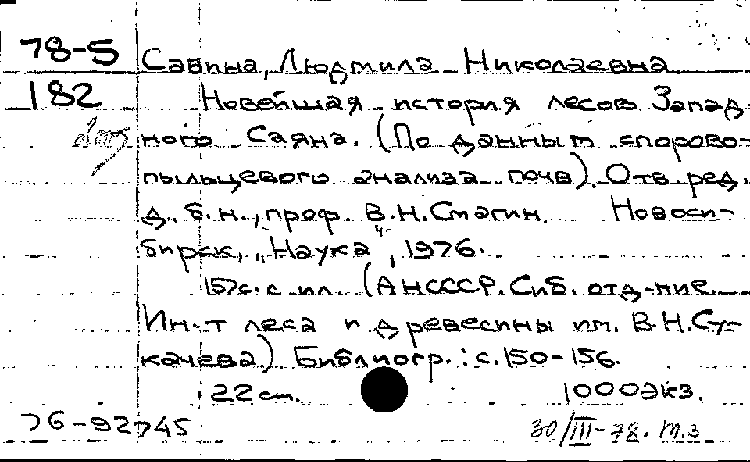 78-5 Савина, Людмила Николаевна
182 Новейшая история лесов Запад-
ного Саяна. (По данным спорово-
пыльцевого анализа почв). Отв. ред.
д. б. н., проф. В.Н.Смагин. Новоси-
бирск, „Наука", 1976.
157с. с ил. (АНСССР. Сиб. отд-ние.
Ин-т леса и древесины им. В.Н.Су-
качева) Библиогр.: с. 150-156.
22 см. 1000экз.
76-92745 30/III-78. М.З